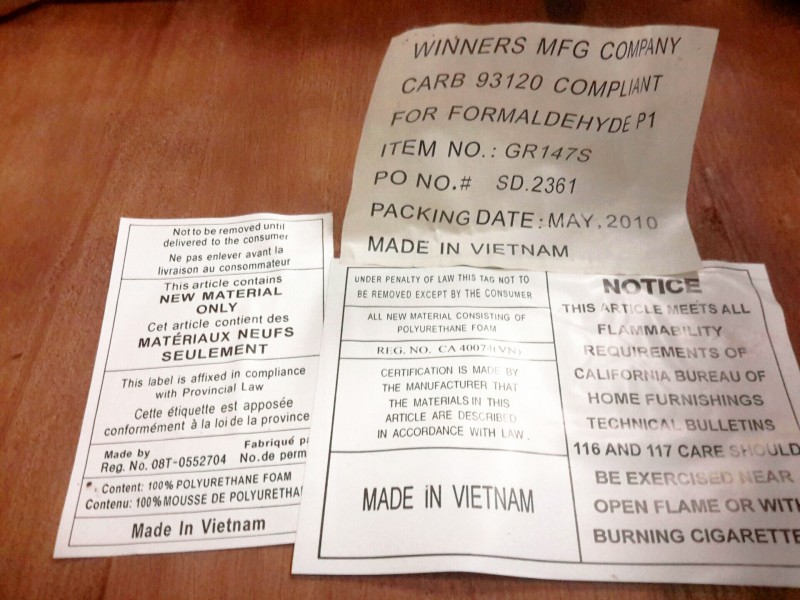 WINNERS MFG COMPANY
CARB 93120 COMPLIANT
FOR FORMALDEHYDE P1
ITEM NO.: GR147S
PO NO.# SD.2361
PACKING DATE: MAY, 2010
MADE IN VIETNAM
Not to be removed until
delivered to the consumer
Ne pas enlever avant la
livraison au consommateur
This article contains
NEW MATERIAL
ONLY
Cet article contient des
MATÉRIAUX NEUFS
SEULEMENT
This label is affixed in compliance
with Provincial Law
Cette étiquette est apposée
conformément à la loi de la province
Made by
Reg. No. 08T-0552704
Fabriqué
No. de perm
Content: 100% POLYURETHANE FOAM
Contenu: 100% MOUSSE DE POLYURETHA
Made In Vietnam
UNDER PENALTY OF LAW THIS TAG NOT TO
BE REMOVED EXCEPT BY THE CONSUMER
ALL NEW MATERIAL CONSISTING OF
POLYURETHANE FOAM
REG. NO. CA 40074(VN)
CERTIFICATION IS MADE BY
THE MANUFACTURER THAT
THE MATERIALS IN THIS
ARTICLE ARE DESCRIBED
IN ACCORDANCE WITH LAW.
MADE iN VIETNAM
NOTICE
THIS ARTICLE MEETS ALL
FLAMMABILITY
REQUIREMENTS OF
CALIFORNIA BUREAU OF
HOME FURNISHINGS
TECHNICAL BULLETINS
116 AND 117 CARE SHOULD
BE EXERCISED NEAR
OPEN FLAME OR WITH
BURNING CIGARETTE